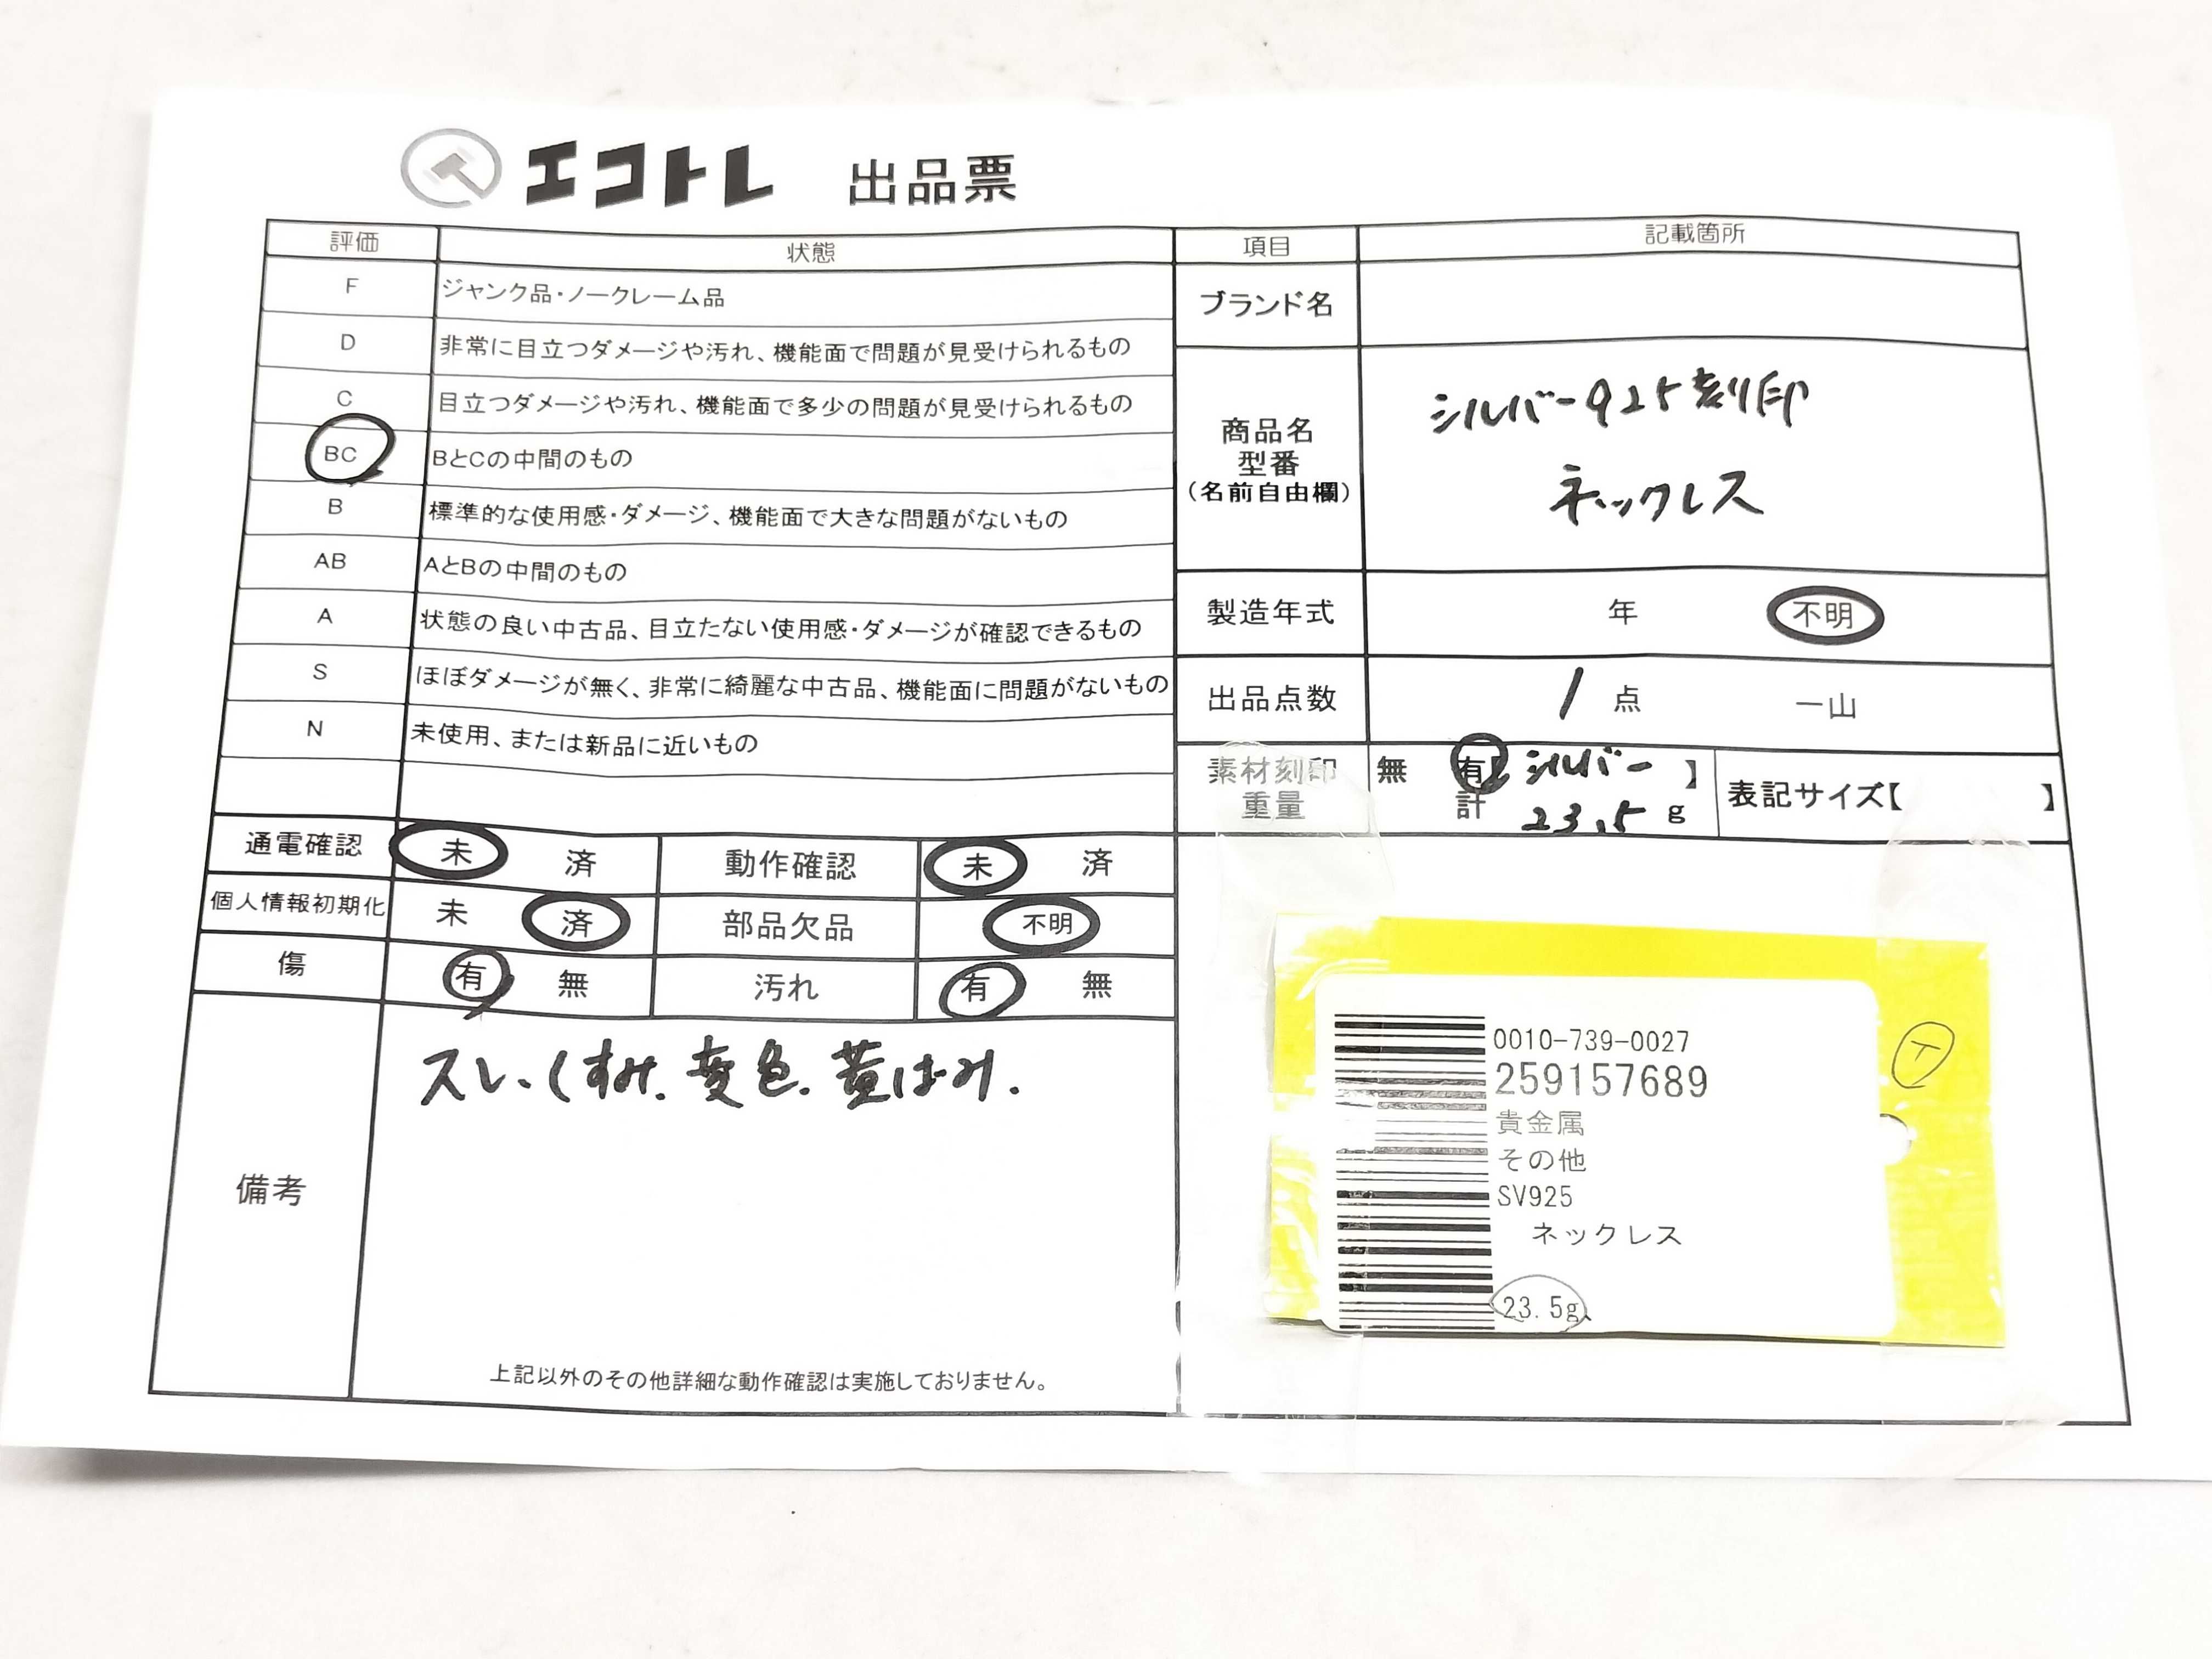 エコトレ 出品票
評価 状態
F ジャンク品・ノークレーム品
D 非常に目立つダメージや汚れ、機能面で問題が見受けられるもの
C 目立つダメージや汚れ、機能面で多少の問題が見受けられるもの
BC BとCの中間のもの
B 標準的な使用感・ダメージ、機能面で大きな問題がないもの
AB AとBの中間のもの
A 状態の良い中古品、目立たない使用感・ダメージが確認できるもの
S ほぼダメージが無く、非常に綺麗な中古品、機能面に問題がないもの
N 未使用、または新品に近いもの
通電確認 未 済 動作確認 未 済
個人情報初期化 未 済 部品欠品 不明
傷 有 無 汚れ 有 無
備考
スレ、くすみ.変色.黄ばみ.
上記以外のその他詳細な動作確認は実施しておりません。
項目 記載箇所
ブランド名
商品名
型番
(名前自由欄)
シルバー925刻印
ネックレス
製造年式 年 不明
出品点数 1 点 一山
素材刻印 無 有 シルバー 】
重量 計 23.5 g
表記サイズ【 】
0010-739-0027
259157689
貴金属
その他
SV925
ネックレス
23.5g
T